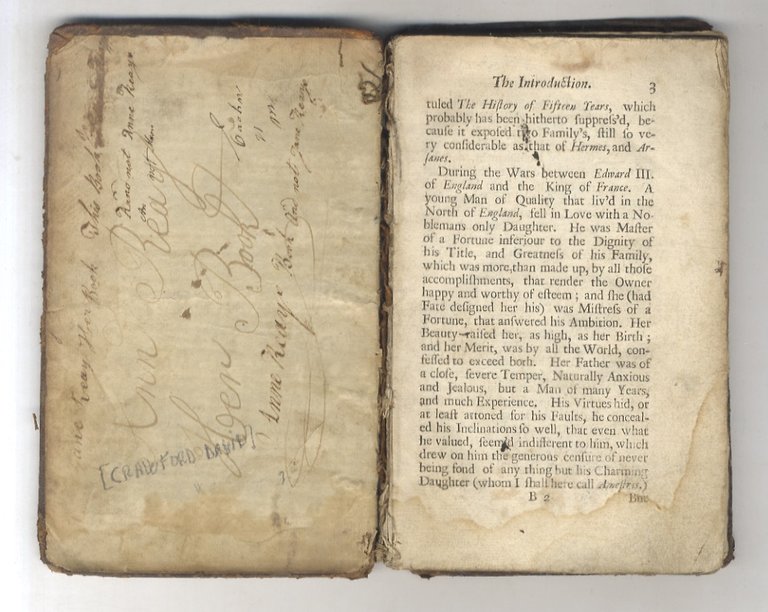 Jane Reay Her Book
This Book
Anne not Anne Reays
not him
Ann Reay
Her Book
Anne Reays Book And not Jane Reays
[CRAWFORD DAVID]
3
The Introduction. 3
tuled The Hiſtory of Fifteen Years, which
probably has been hitherto ſuppreſs'd, be-
cauſe it expoſed two Family's, ſtill ſo ve-
ry conſiderable as that of Hermes, and Ar-
ſanes.
During the Wars between Edward III.
of England and the King of France. A
young Man of Quality that liv'd in the
North of England, fell in Love with a No-
blemans only Daughter. He was Maſter
of a Fortune inferiour to the Dignity of
his Title, and Greatneſs of his Family,
which was more, than made up, by all thoſe
accompliſhments, that render the Owner
happy and worthy of eſteem ; and ſhe (had
Fate deſigned her his) was Miſtreſs of a
Fortune, that anſwered his Ambition. Her
Beauty raiſed her, as high, as her Birth ;
and her Merit, was by all the World, con-
feſſed to exceed both. Her Father was of
a cloſe, ſevere Temper, Naturally Anxious
and Jealous, but a Man of many Years,
and much Experience. His Virtues hid, or
at leaſt attoned for his Faults, he conceal-
ed his Inclinations ſo well, that even what
he valued, ſeem'd indifferent to him, which
drew on him the generous cenſure of never
being fond of any thing but his Charming
Daughter (whom I ſhall here call Aneſtres.)
B 2 But